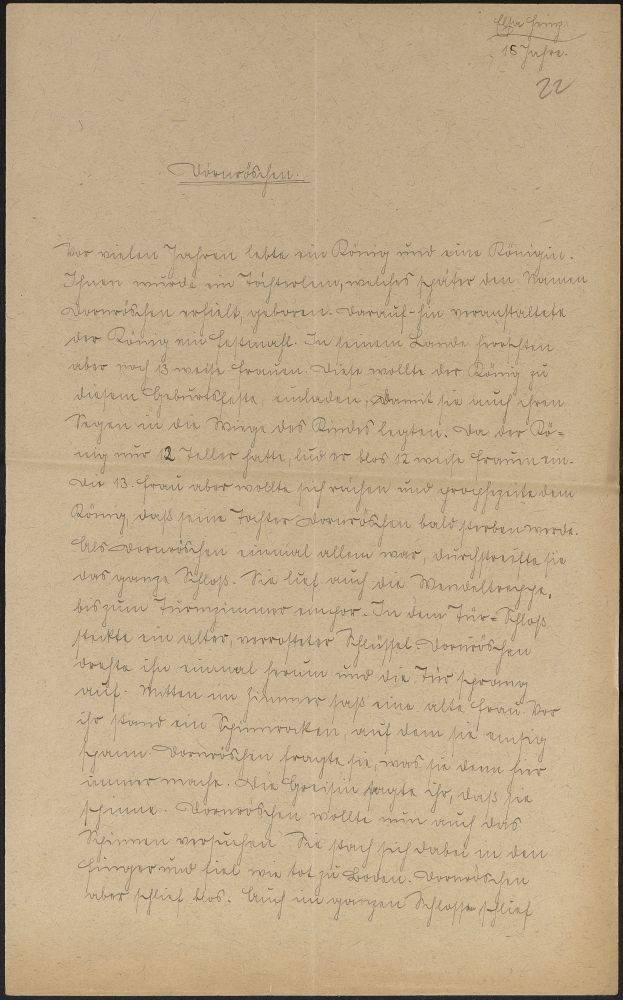 15 Jahre.
22
Dornröschen.
Vor vielen Jahren lebte ein König und eine Königin.
Ihnen wurde ein Töchterlein, welches später den Namen
Dornröschen erhielt, geboren. Darauf-hin veranstaltete
der König ein Festmahl. In seinem Lande herrschten
aber noch 13 weise Frauen. Diese wollte der König zu
diesem Geburtsfeste, einladen, damit sie auch ihren
Segen in die Wiege des Kindes legten. Da der Kö=
nig nur 12 Teller hatte, lud er blos 12 weise Frauen ein.
Die 13. Frau aber wollte sich rächen und prophezeite dem
König, daß seine Tochter Dornröschen bald sterben werde.
Als Dornröschen einmal allein war, durchstreifte sie
das ganze Schloß. Sie lief auch die Wendeltreppe,
bis zum Turmzimmer empor. In dem Tür=Schloß
steckte ein alter, verrosteter Schlüssel. Dornröschen
drehte ihn einmal herum und die Tür sprang
auf. Mitten im Zimmer saß eine alte Frau. Vor
ihr stand ein Spinnrocken, auf dem sie emsig
spann. Dornröschen fragte sie, was sie denn hier
immer mache. Die Greisin sagte ihr, daß sie
spinne. Dornröschen wollte nun auch das
Spinnen versuchen. Sie stach sich dabei in den
Finger und fiel wie tot zu Boden. Dornröschen
aber schlief blos. Auch im ganzen Schlosse schlief